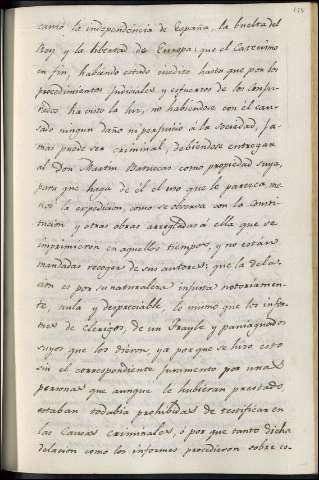 camó la independencia de España, la buelta del
Rey y la libertad de Europa; que el Catecismo
en fin, habiendo estado inedito hasta que por los
procedimientos Judiciales y esfuerzos de los
ha visto la luz, no habiendose con el cau-
sado ningun daño ni perjuicio á la Sociedad, ja-
mas puede ser criminal, debiendose entregar
al Don Martin Batuecas como propiedad suya,
para que haga de él el uso que le parezca, me-
nos la expedicion, como se observa con la Consti-
tucion y otras obras arregladas á ella que se
imprimieron en aquellos tiempos, y no estan
mandadas recoger de sus autores; que la dela-
cion es por su naturaleza injusta notoriamen-
te, nula y despreciable, lo mismo que los infor-
mes de Clerigos, de un Frayle y paniaguados
suyos que los dieron, ya porque se hizo esto
sin el correspondiente Juramento por unas
personas que aunque le hubieran prestado
estaban todabia prohibidas de testificar en
las Causas criminales, ó por que tanto dicha
delacion como los informes procedieron sobre co-